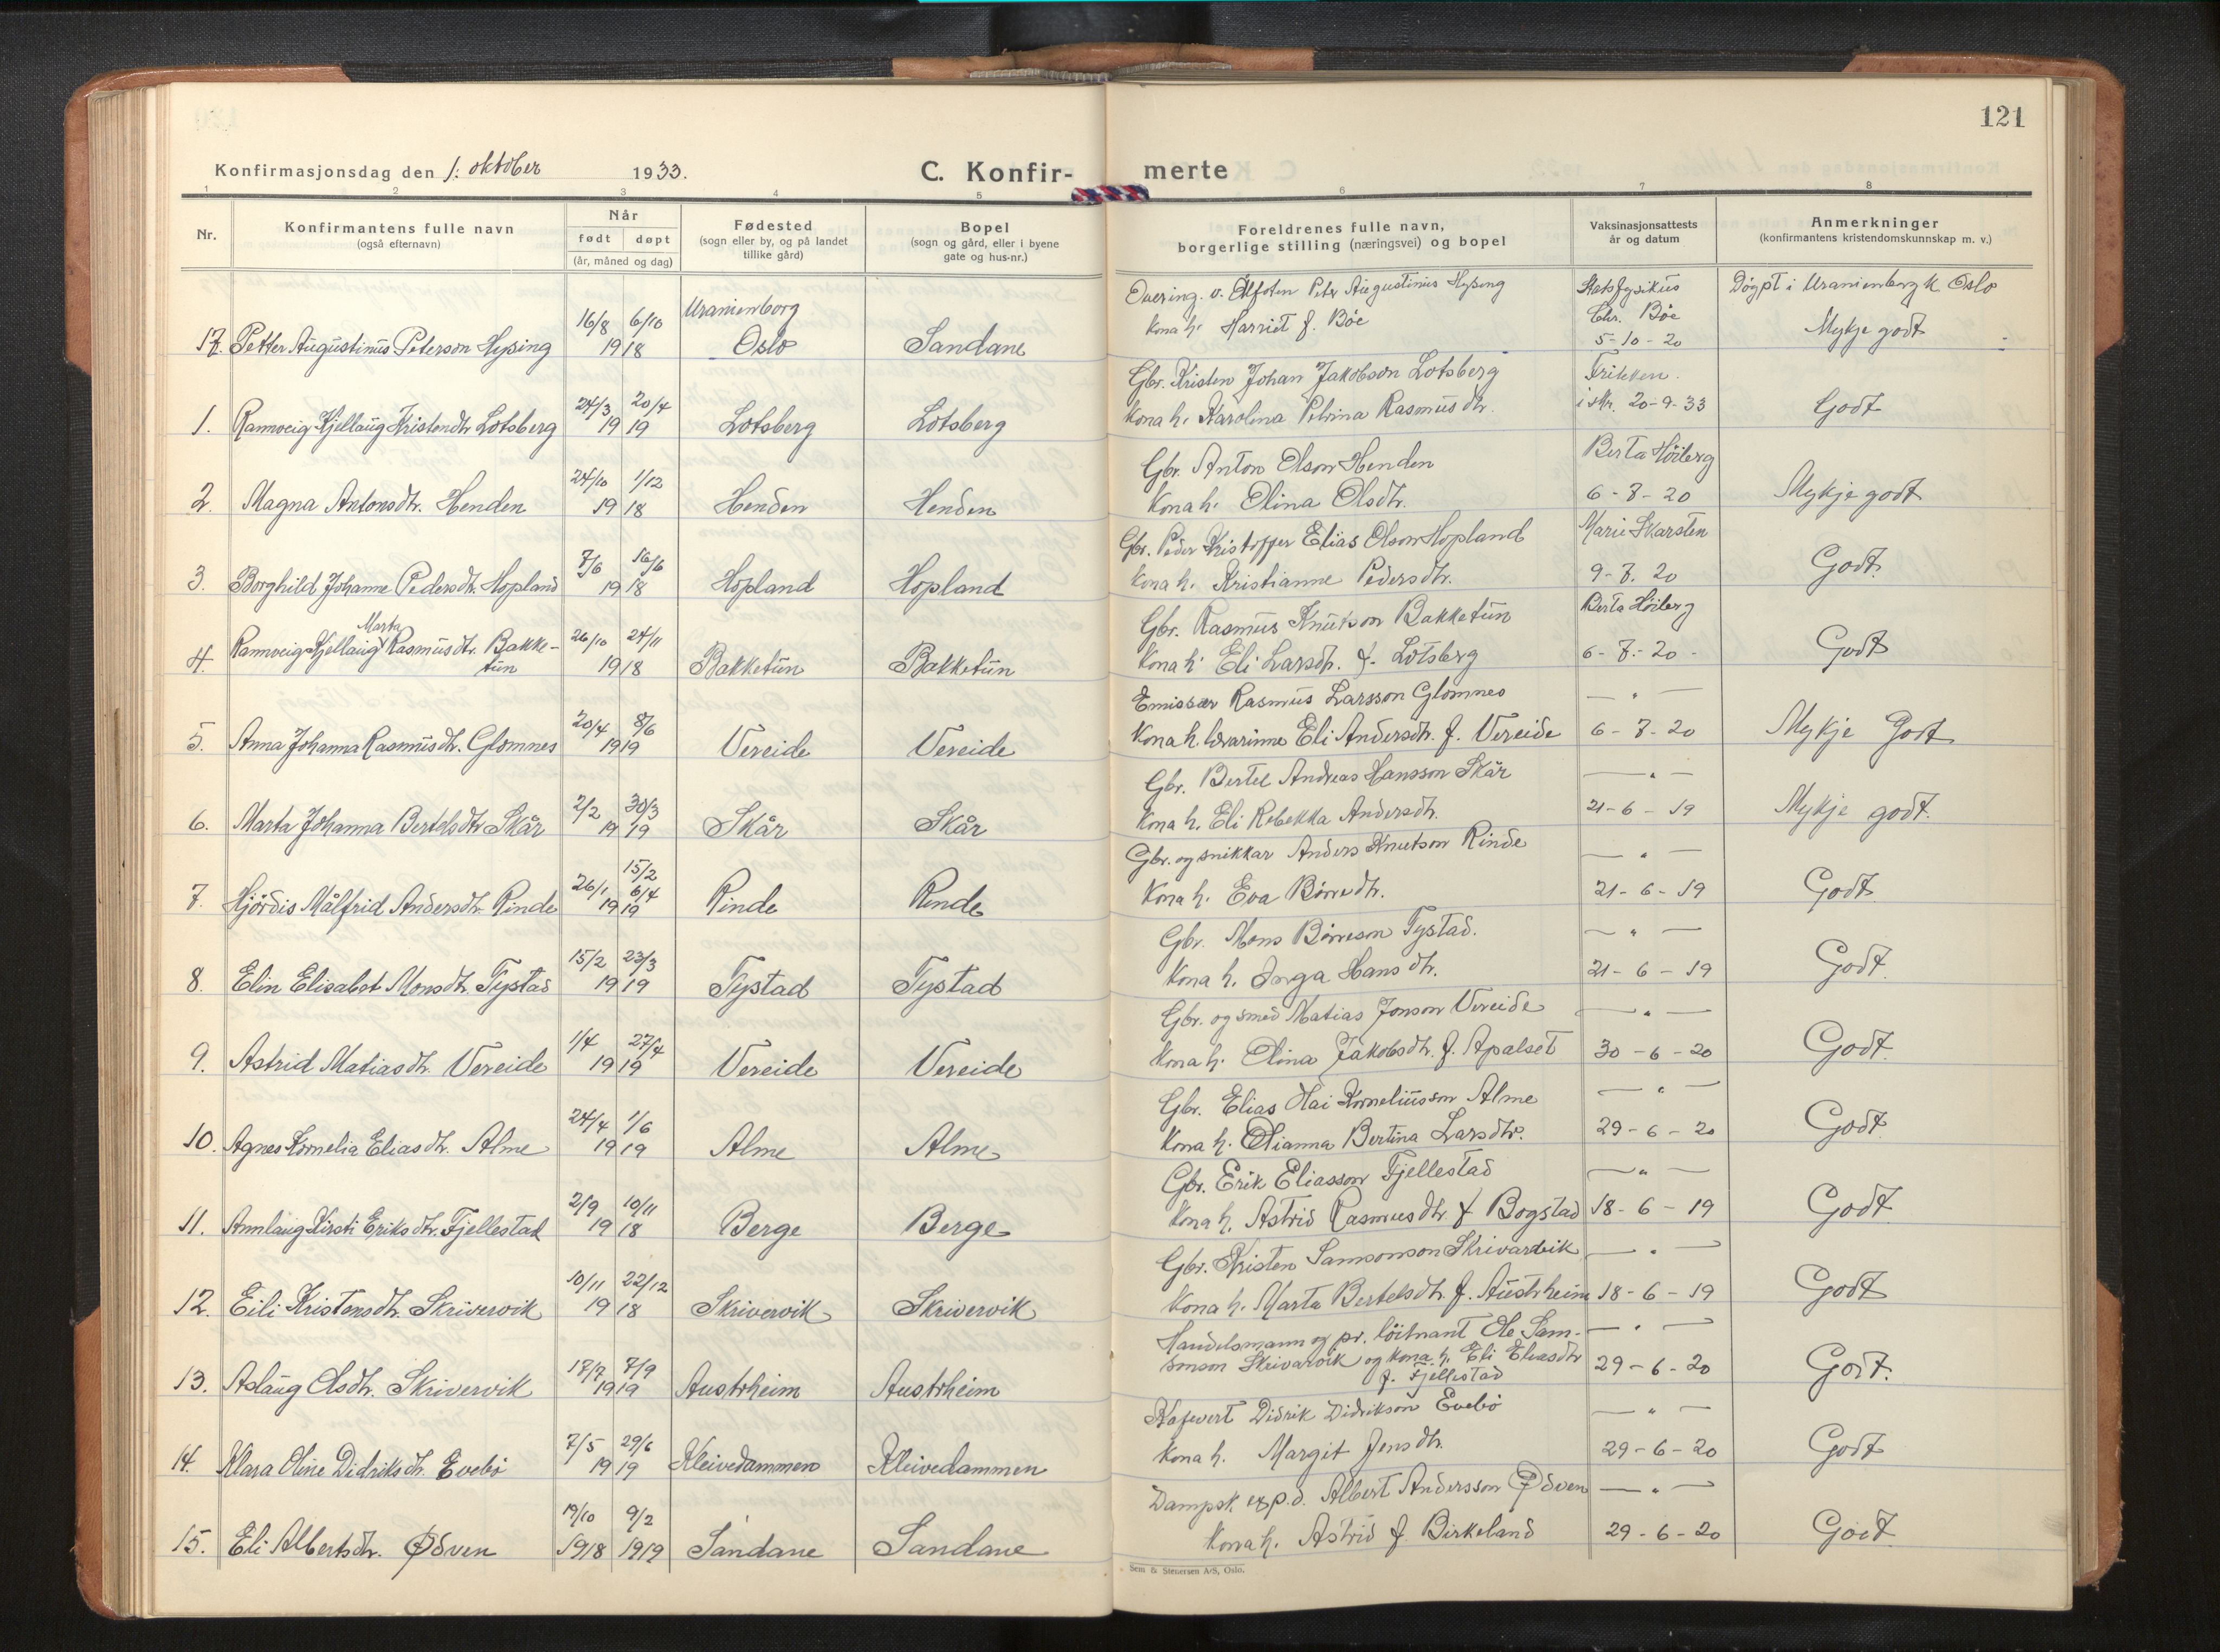 121
Konfirmasjonsdag den 1. oktober 1933.
C. Konfir- merte
1 2 3 4 5 6 7 8
Nr.
Konfirmantens fulle navn
(også efternavn)
Når
født døpt
(år, måned og dag)
Fødested
(sogn eller by, og på landet
tillike gård)
Bopel
(sogn og gård, eller i byene
gate og hus-nr.)
Foreldrenes fulle navn,
borgerlige stilling (næringsvei) og bopel
Vaksinasjonsattests
år og datum
Anmerkninger
(konfirmantens kristendomskunnskap m. v.)
Peter Augustinus Hysing Statsfysikus Døypt i Uranienborg k. Oslo
16/8 6/10 Uranienborg kona h. Harriet f. Böe Chr. Böe Mykje godt
17. Petter Augustinus Peterson Hysing 19 18 Oslo Sandane 5-10-20
Gbr. Kristen Johan Jakobson Lotsberg
24/3 20/4 kona h. Karolina Petrina Rasmusdtr. 20-9-33 Godt
1. Rannveig Kjellaug Kristendtr. Lotsberg 19 19 Lotsberg Lotsberg
Gbr. Anton Olson Henden Berta Höiberg
24/10 1/12 kona h. Olina Olsdtr. 6-8-20 Mykje godt
2. Magna Antonsdtr. Henden 19 18 Henden Henden
Gbr. Peder Kristoffer Elias Olson Hopland Marie Skarsten
7/6 16/6 kona h. Kristianne Pedersdtr. 9-8.20 Godt.
3. Borghild Johanne Pedersdtr. Hopland 19 18 Hopland Hopland
Gbr. Rasmus Knutson Bakketun Berta Höiberg
Marta
Rannveig Kjellaug Rasmusdtr. Bakke- 26/10 24/11 kona h. Eli Larsdtr. f. Lotsberg 6-8-20 - Godt
4. tun 19 18 Bakketun Bakketun
Emissær Rasmus Larsson Glomnes — " —
20/4 8/6 kona h. lærarinne Eli Andersdtr. f. Vereide 6-8-20 Mykje Godt
5. Anna Johanna Rasmusdtr. Glomnes 19 19 Vereide Vereide
Gbr. Bertel Andreas Hansson Skår — " —
2/2 30/3 kona h. Eli Rebekka Andersdtr. 21-6-19 Mykje godt.
6. Marta Johanna Bertelsdtr. Skår 19 19 Skår Skår
Gbr. og snikkar Anders Knutson Rinde — " —
15/2
26/1 6/4 kona h. Eva Börredtr. 21-6-19 Godt
7. Hjördis Målfrid Andersdtr. Rinde 19 19 Rinde Rinde
Gbr. Mons Börreson Tystad. — " —
15/2 23/3 kona h. Inga Hansdtr. 21-6-19 Godt
8. Elin Elisabet Monsdtr. Tystad 19 19 Tystad Tystad
Gbr. og smed Matias Jonson Vereide — " —
1/4 27/4 kona h. Olina Jakobsdtr. f. Apalset 30-6-20 Godt
9. Astrid Matiasdtr. Vereide 19 19 Vereide Vereide
Gbr. Elias Korneliusson Alme — " —
24/4 1/6 kona h. Olianna Bertina Larsdtr. 29-6-20 Godt
10. Agnes Kornelia Eliasdtr. Alme 19 19 Alme Alme
Gbr. Erik Eliasson Fjellestad — " —
2/9 10/11 kona h. Astrid Rasmusdtr f Bogstad 18-6-19 Godt
11. Annlaug Kirsti Eriksdtr. Fjellestad 19 18 Berge Berge
Gbr. Kristen Samsonson Skrivarvik — " —
10/11 22/12 kona h. Marta Bertelsdtr. f. Austrheim 18-6-19 Godt
12. Eili Kristensdtr. Skrivervik 19 18 Skrivervik Skrivervik
Handelsmann og pr. löitnant Ole Sam- — " —
17/7 7/9 sonson Skrivarvik og kona h. Eli Eliasdtr 29-6-20 Godt.
f. Fjellestad
13. Aslaug Olsdtr. Skrivervik 19 19 Austrheim Austrheim
Kafevert Didrik Didrikson Evebö — " —
7/5 29/6 kona h. Margit Jensdtr. 29-6-20 Godt
14. Klara Oline Didriksdtr. Evebö 19 19 Kleivedammen Kleivedammen
Dampsk. exp.d. Albert Andersson Ødven — " —
19/10 9/2 kona h. Astrid f. Birkeland 29-6-20 Godt
15. Eli Albertsdtr. Ødven 1918 1919 Sandane Sandane
Sem & Stenersen A/S, Oslo.